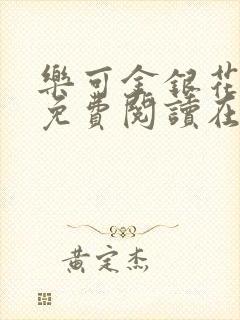 樂可金銀花
免費閱讀在
黃定杰